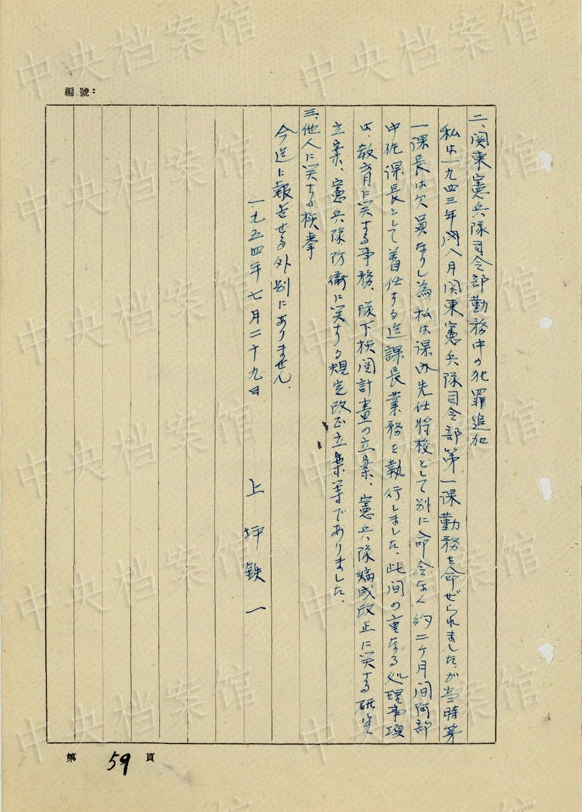 編號：
二、関東憲兵隊司令部勤務中の犯罪追加
私は一九四三年八月関東憲兵隊司令部第一課勤務を命ぜられましたが当時第
一課長は欠員なりし為私は課内先任将校として別に命令なく約二ヶ月間阿部
中佐課長として着任する迄課長業務を執行しました、此間の重なる処理事項
は、教育に関する事務、隊下検閲計畫の立案、憲兵隊編成改正に関する研究
立案、憲兵隊防衛に関する規定改正立案等でありました、
三、他人に関する検挙
今迄に報告せる外別にありません、
一九五四年七月二十九日
上坪鉄一
第59頁
中央档案馆